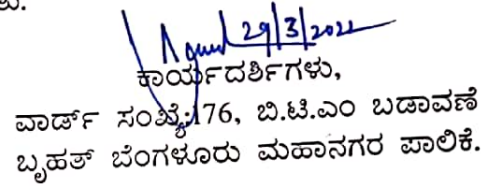 ು.
29/3/2022
ಕಾರ್ಯದರ್ಶಿಗಳು,
ವಾರ್ಡ್ ಸಂಖ್ಯೆ:176, ಬಿ.ಟಿ.ಎಂ ಬಡಾವಣೆ
ಬೃಹತ್ ಬೆಂಗಳೂರು ಮಹಾನಗರ ಪಾಲಿಕೆ.